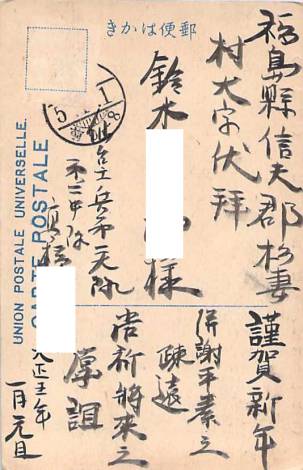 郵便はがき
UNION POSTALE UNIVERSELLE.
CARTE POSTALE
福島縣信夫郡杉妻
村大字伏拝
鈴木
様
仙台工兵第二大隊
第二中隊
高橋
大正五年
一月元旦
謹賀新年
併謝平素之
疎遠
尚祈将来之
厚誼